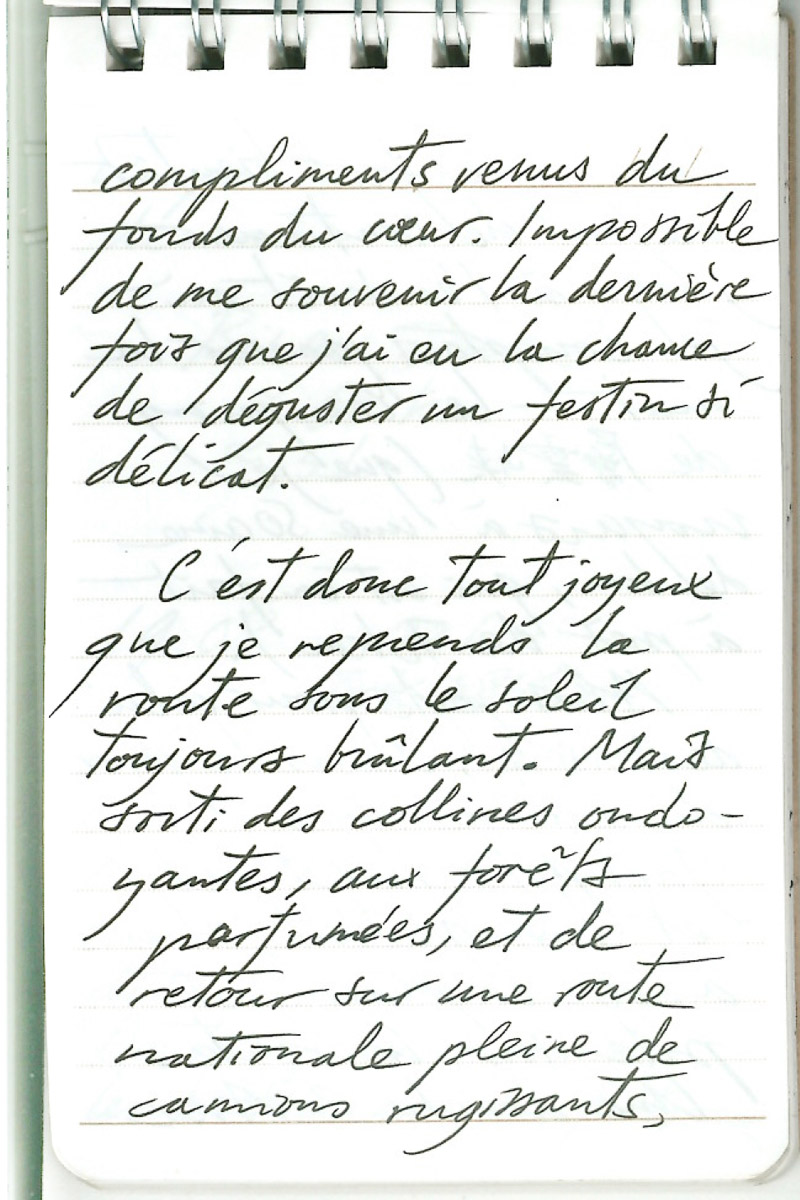 compliments venus du
fonds du cœur. Impossible
de me souvenir la dernière
fois que j'ai eu la chance
de déguster un festin si
délicat.
C'est donc tout joyeux
que je reprends la
route sous le soleil
toujours brûlant. Mais
sorti des collines ondo-
yantes, aux forêts
parfumées, et de
retour sur une route
nationale pleine de
camions rugissants,